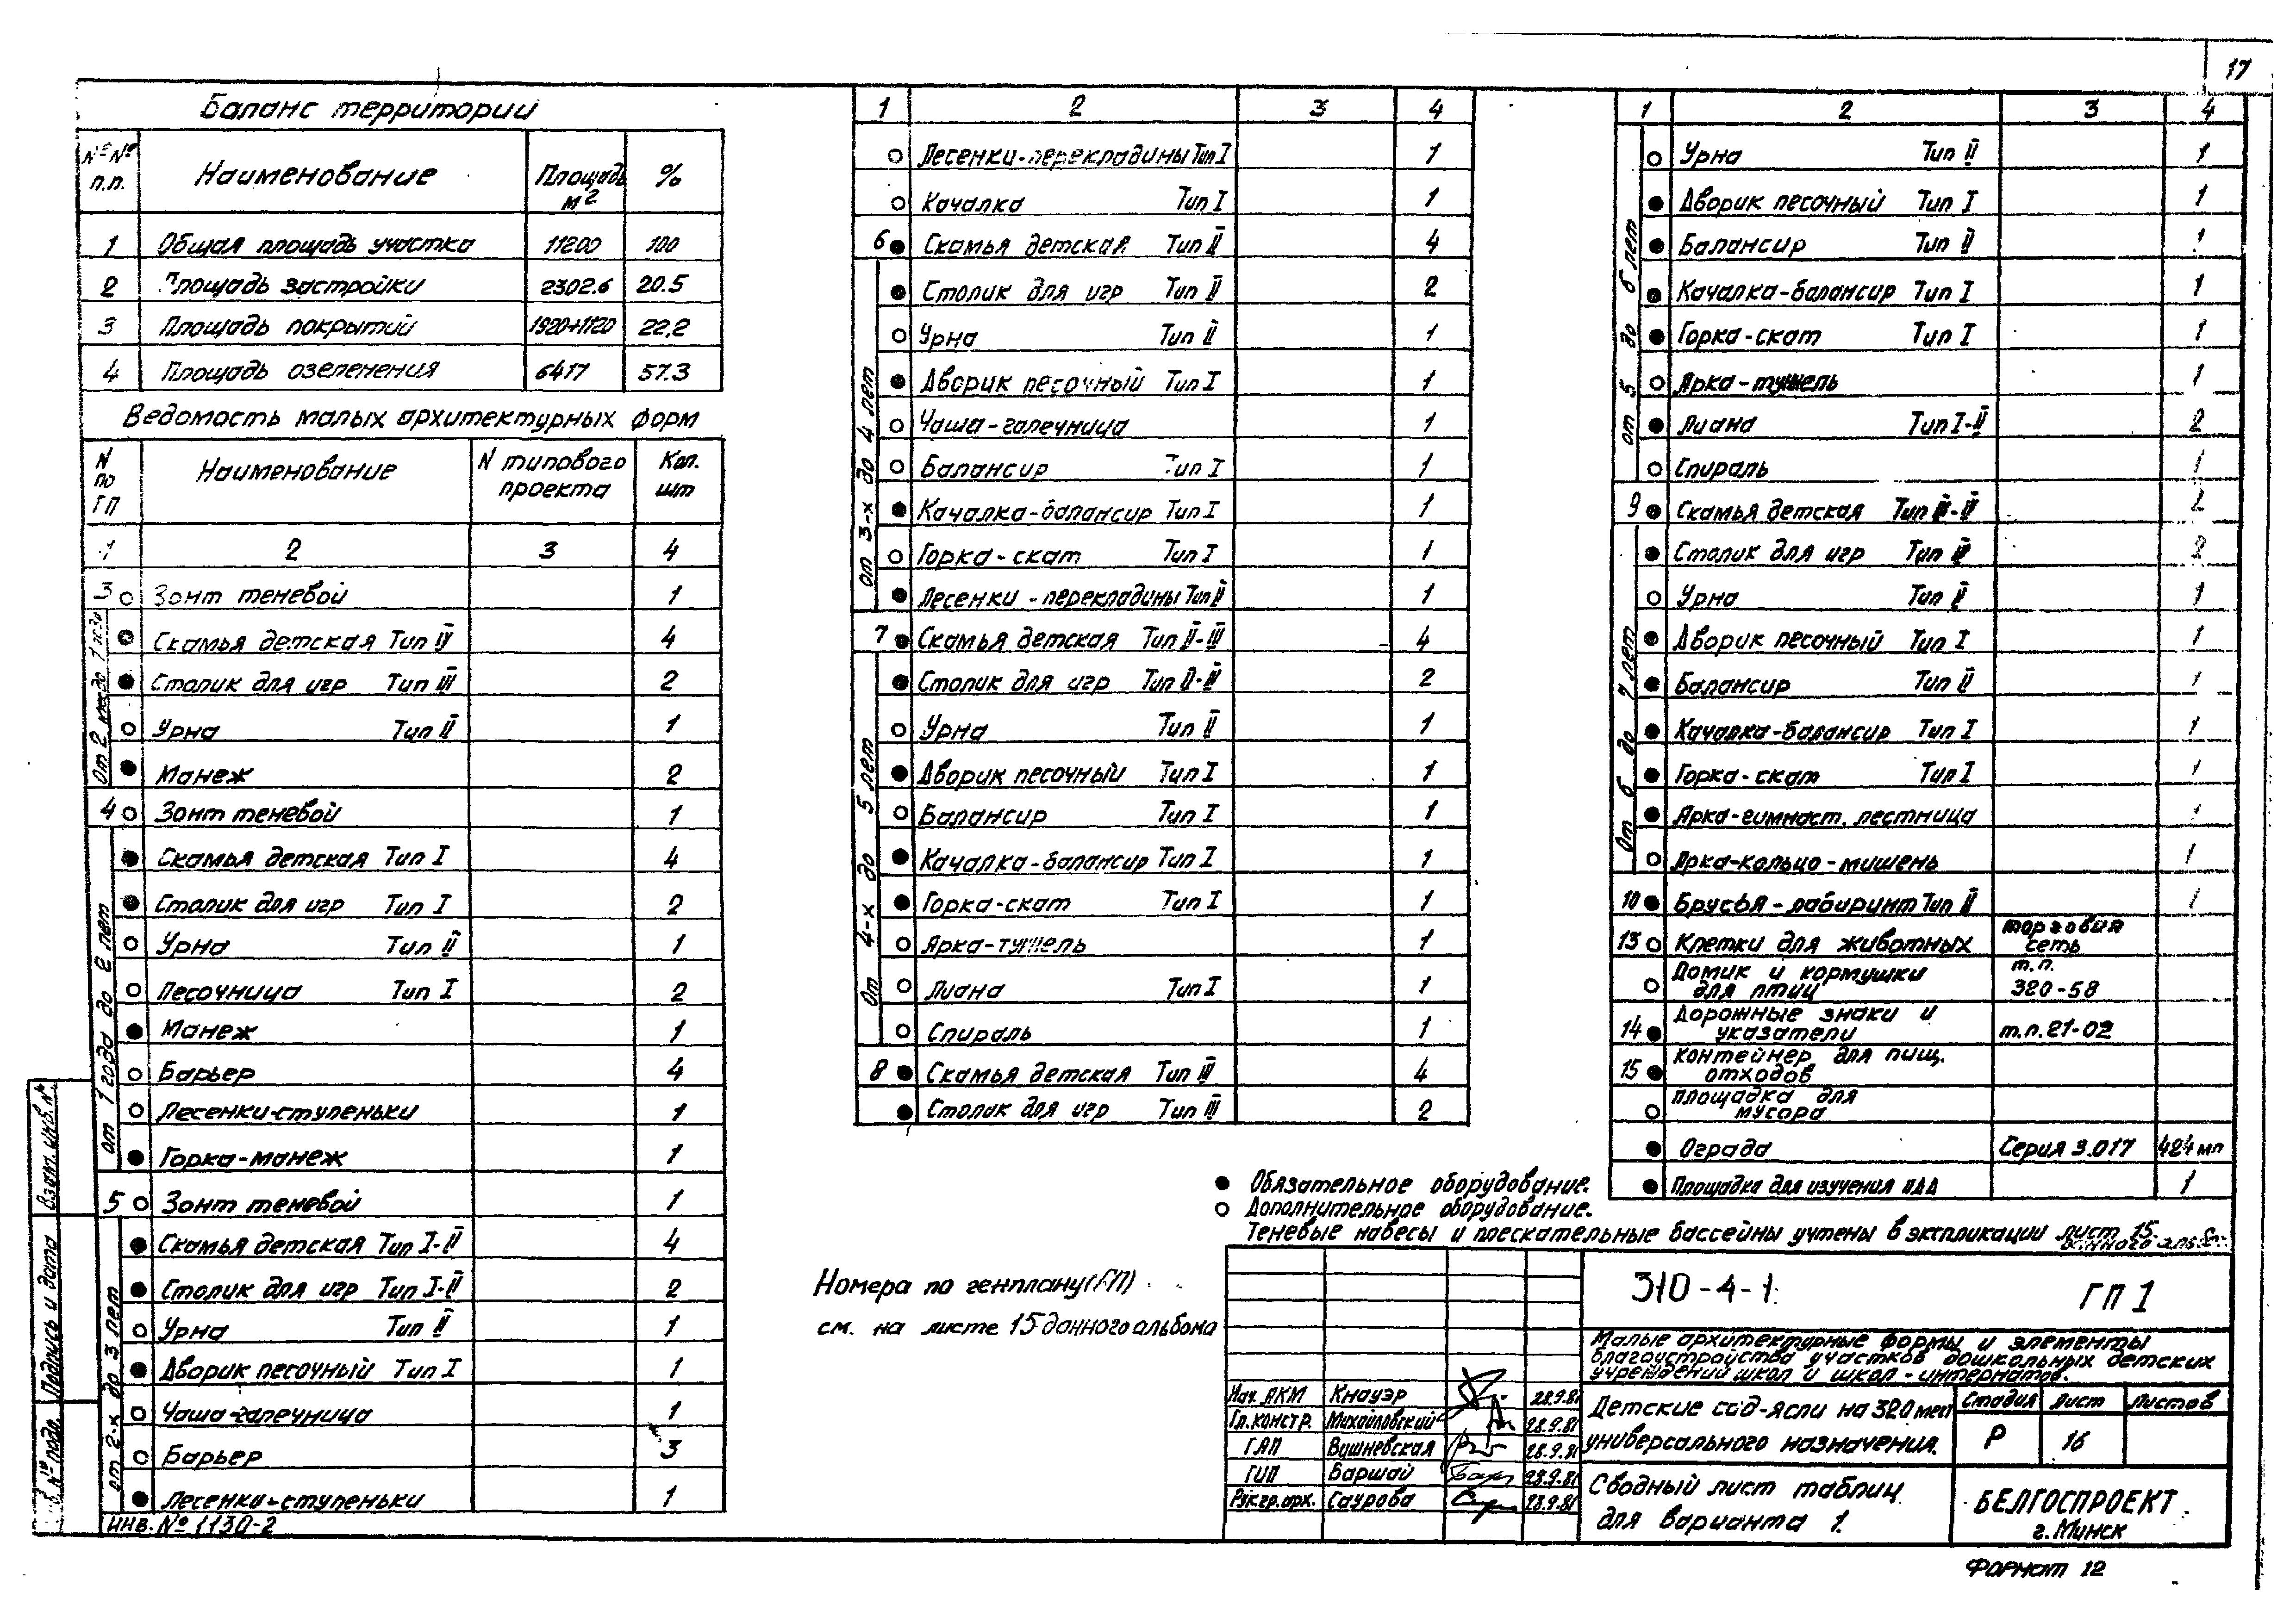 17
Баланс территории
№№ п.п. Наименование Площадь м2 %
1 Общая площадь участка 11200 100
2 Площадь застройки 2302.6 20.5
3 Площадь покрытий 1920+1120 22,2
4 Площадь озеленения 6417 57.3
Ведомость малых архитектурных форм
N по ГП Наименование N типового проекта Кол. шт
1 2 3 4
3 Зонт теневой 1
Скамья детская Тип IV 4
Столик для игр Тип III 2
Урна Тип II 1
Манеж 2
4 Зонт теневой 1
от 1 года до 2 лет
Скамья детская Тип I 4
Столик для игр Тип I 2
Урна Тип II 1
Песочница Тип I 2
Манеж 1
Барьер 4
Лесенки-ступеньки 1
Горка-манеж 1
5 Зонт теневой 1
от 2-х до 3 лет
Скамья детская Тип I-II 4
Столик для игр Тип I-II 2
Урна Тип II 1
Дворик песочный Тип I 1
Чаша-галечница 1
Барьер 3
Лесенки-ступеньки 1
инв. № 1130-2
Взам. инв. №
Подпись и дата
№ подл.
1 2 3 4
Лесенки-перекладины Тип I 1
Качалка Тип I 1
6 Скамья детская Тип II 4
от 3-х до 4 лет
Столик для игр Тип II 2
Урна Тип II 1
Дворик песочный Тип I 1
Чаша-галечница 1
Балансир Тип I 1
Качалка-балансир Тип I 1
Горка-скат Тип I 1
Лесенки-перекладины Тип II 1
7 Скамья детская Тип II-III 4
От 4-х до 5 лет
Столик для игр Тип II-III 2
Урна Тип II 1
Дворик песочный Тип I 1
Балансир Тип I 1
Качалка-балансир Тип I 1
Горка-скат Тип I 1
Арка-туннель 1
Лиана Тип I 1
Спираль 1
8 Скамья детская Тип III 4
Столик для игр Тип III 2
1 2 3 4
от 5 до 6 лет
Урна Тип II 1
Дворик песочный Тип I 1
Балансир Тип II 1
Качалка-балансир Тип I 1
Горка-скат Тип I 1
Арка-туннель 1
Лиана Тип I-II 2
Спираль 1
9 Скамья детская Тип 2
От 6 до 7 лет
Столик для игр Тип 2
Урна Тип II 1
Дворик песочный Тип I 1
Балансир Тип II 1
Качалка-балансир Тип I 1
Горка-скат Тип I 1
Арка-гимнаст. лестница 1
Арка-кольцо-мишень 1
10 Брусья-лабиринт Тип II 1
13 Клетки для животных торговия сеть
Домик и кормушки для птиц т.п. 320-58
14 Дорожные знаки и указатели т.п. 21-02
15 контейнер для пищ. отходов
площадка для мусора
Ограда Серия 3.017 424 мп
Площадка для изучения ПДД 1
Обязательное оборудование.
Дополнительное оборудование.
Теневые навесы и плескательные бассейны учтены в экспликации лист 15.
Номера по генплану (ГП)
см. на листе 15 данного альбома
310-4-1 ГП 1
Малые архитектурные формы и элементы
благоустройства участков дошкольных детских
учреждений школ и школ-интернатов.
Нач. АКМ Кнауэр 28.9.81
Гл. констр. Михайловский 28.9.81
ГАП Вишневская 28.9.81
ГИП Баршай 28.9.81
Рук.гр.арх. Саурова 28.9.81
Детские сад-ясли на 320 мест
универсального назначения.
Стадия Лист Листов
Р 16
Сводный лист таблиц
для варианта 1.
БЕЛГОСПРОЕКТ
г. Минск
Формат 12